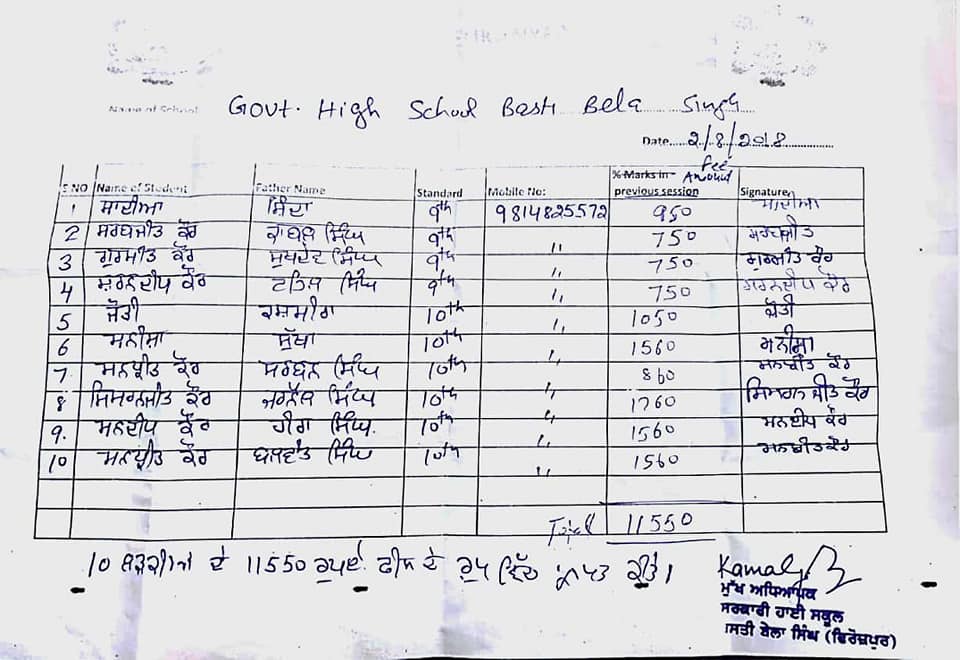 Name of School Govt. High School Basti Bela Singh
Date 2/8/2018
S.NO Name of Student Father Name Standard Mobile No: % Marks in previous session Fee Amount Signature
1 ਸਾਦੀਆ ਸਿੰਦਾ 9th 9814825572 950 ਸਾਦੀਆ
2 ਸਰਬਜੀਤ ਕੌਰ ਕਾਬਲ ਸਿੰਘ 9th " 750 ਸਰਬਜੀਤ
3 ਗੁਰਮੀਤ ਕੌਰ ਸੁਖਦੇਵ ਸਿੰਘ 9th " 750 ਗੁਰਮੀਤ ਕੌਰ
4 ਸ਼ਰਨਦੀਪ ਕੌਰ ਟਹਿਲ ਸਿੰਘ 9th " 750 ਸ਼ਰਨਦੀਪ ਕੌਰ
5 ਜੋਤੀ ਕਸ਼ਮੀਰਾ 10th " 1050 ਜੋਤੀ
6 ਮਨੀਸ਼ਾ ਸੁੱਖਾ 10th " 1560 ਮਨੀਸ਼ਾ
7 ਮਨਪ੍ਰੀਤ ਕੌਰ ਸਰਬਨ ਸਿੰਘ 10th " 860 ਮਨਪ੍ਰੀਤ ਕੌਰ
8 ਸਿਮਰਨਜੀਤ ਕੌਰ ਜਰਨੈਲ ਸਿੰਘ 10th " 1760 ਸਿਮਰਨ ਜੀਤ ਕੌਰ
9. ਮਨਦੀਪ ਕੌਰ ਹੀਰਾ ਸਿੰਘ. 10th " 1560 ਮਨਦੀਪ ਕੌਰ
10 ਮਨਪ੍ਰੀਤ ਕੌਰ ਬਲਵੰਤ ਸਿੰਘ 10th " 1560 ਮਨਪ੍ਰੀਤ ਕੌਰ
Total 11550
10 ਲੜਕੀਆਂ ਦੇ 11550 ਰੁਪਏ ਫੀਸ ਦੇ ਰੂਪ ਵਿੱਚ ਪ੍ਰਾਪਤ ਕੀਤੇ।
ਮੁੱਖ ਅਧਿਆਪਕ
ਸਰਕਾਰੀ ਹਾਈ ਸਕੂਲ
ਬਸਤੀ ਬੇਲਾ ਸਿੰਘ (ਫਿਰੋਜ਼ਪੁਰ)